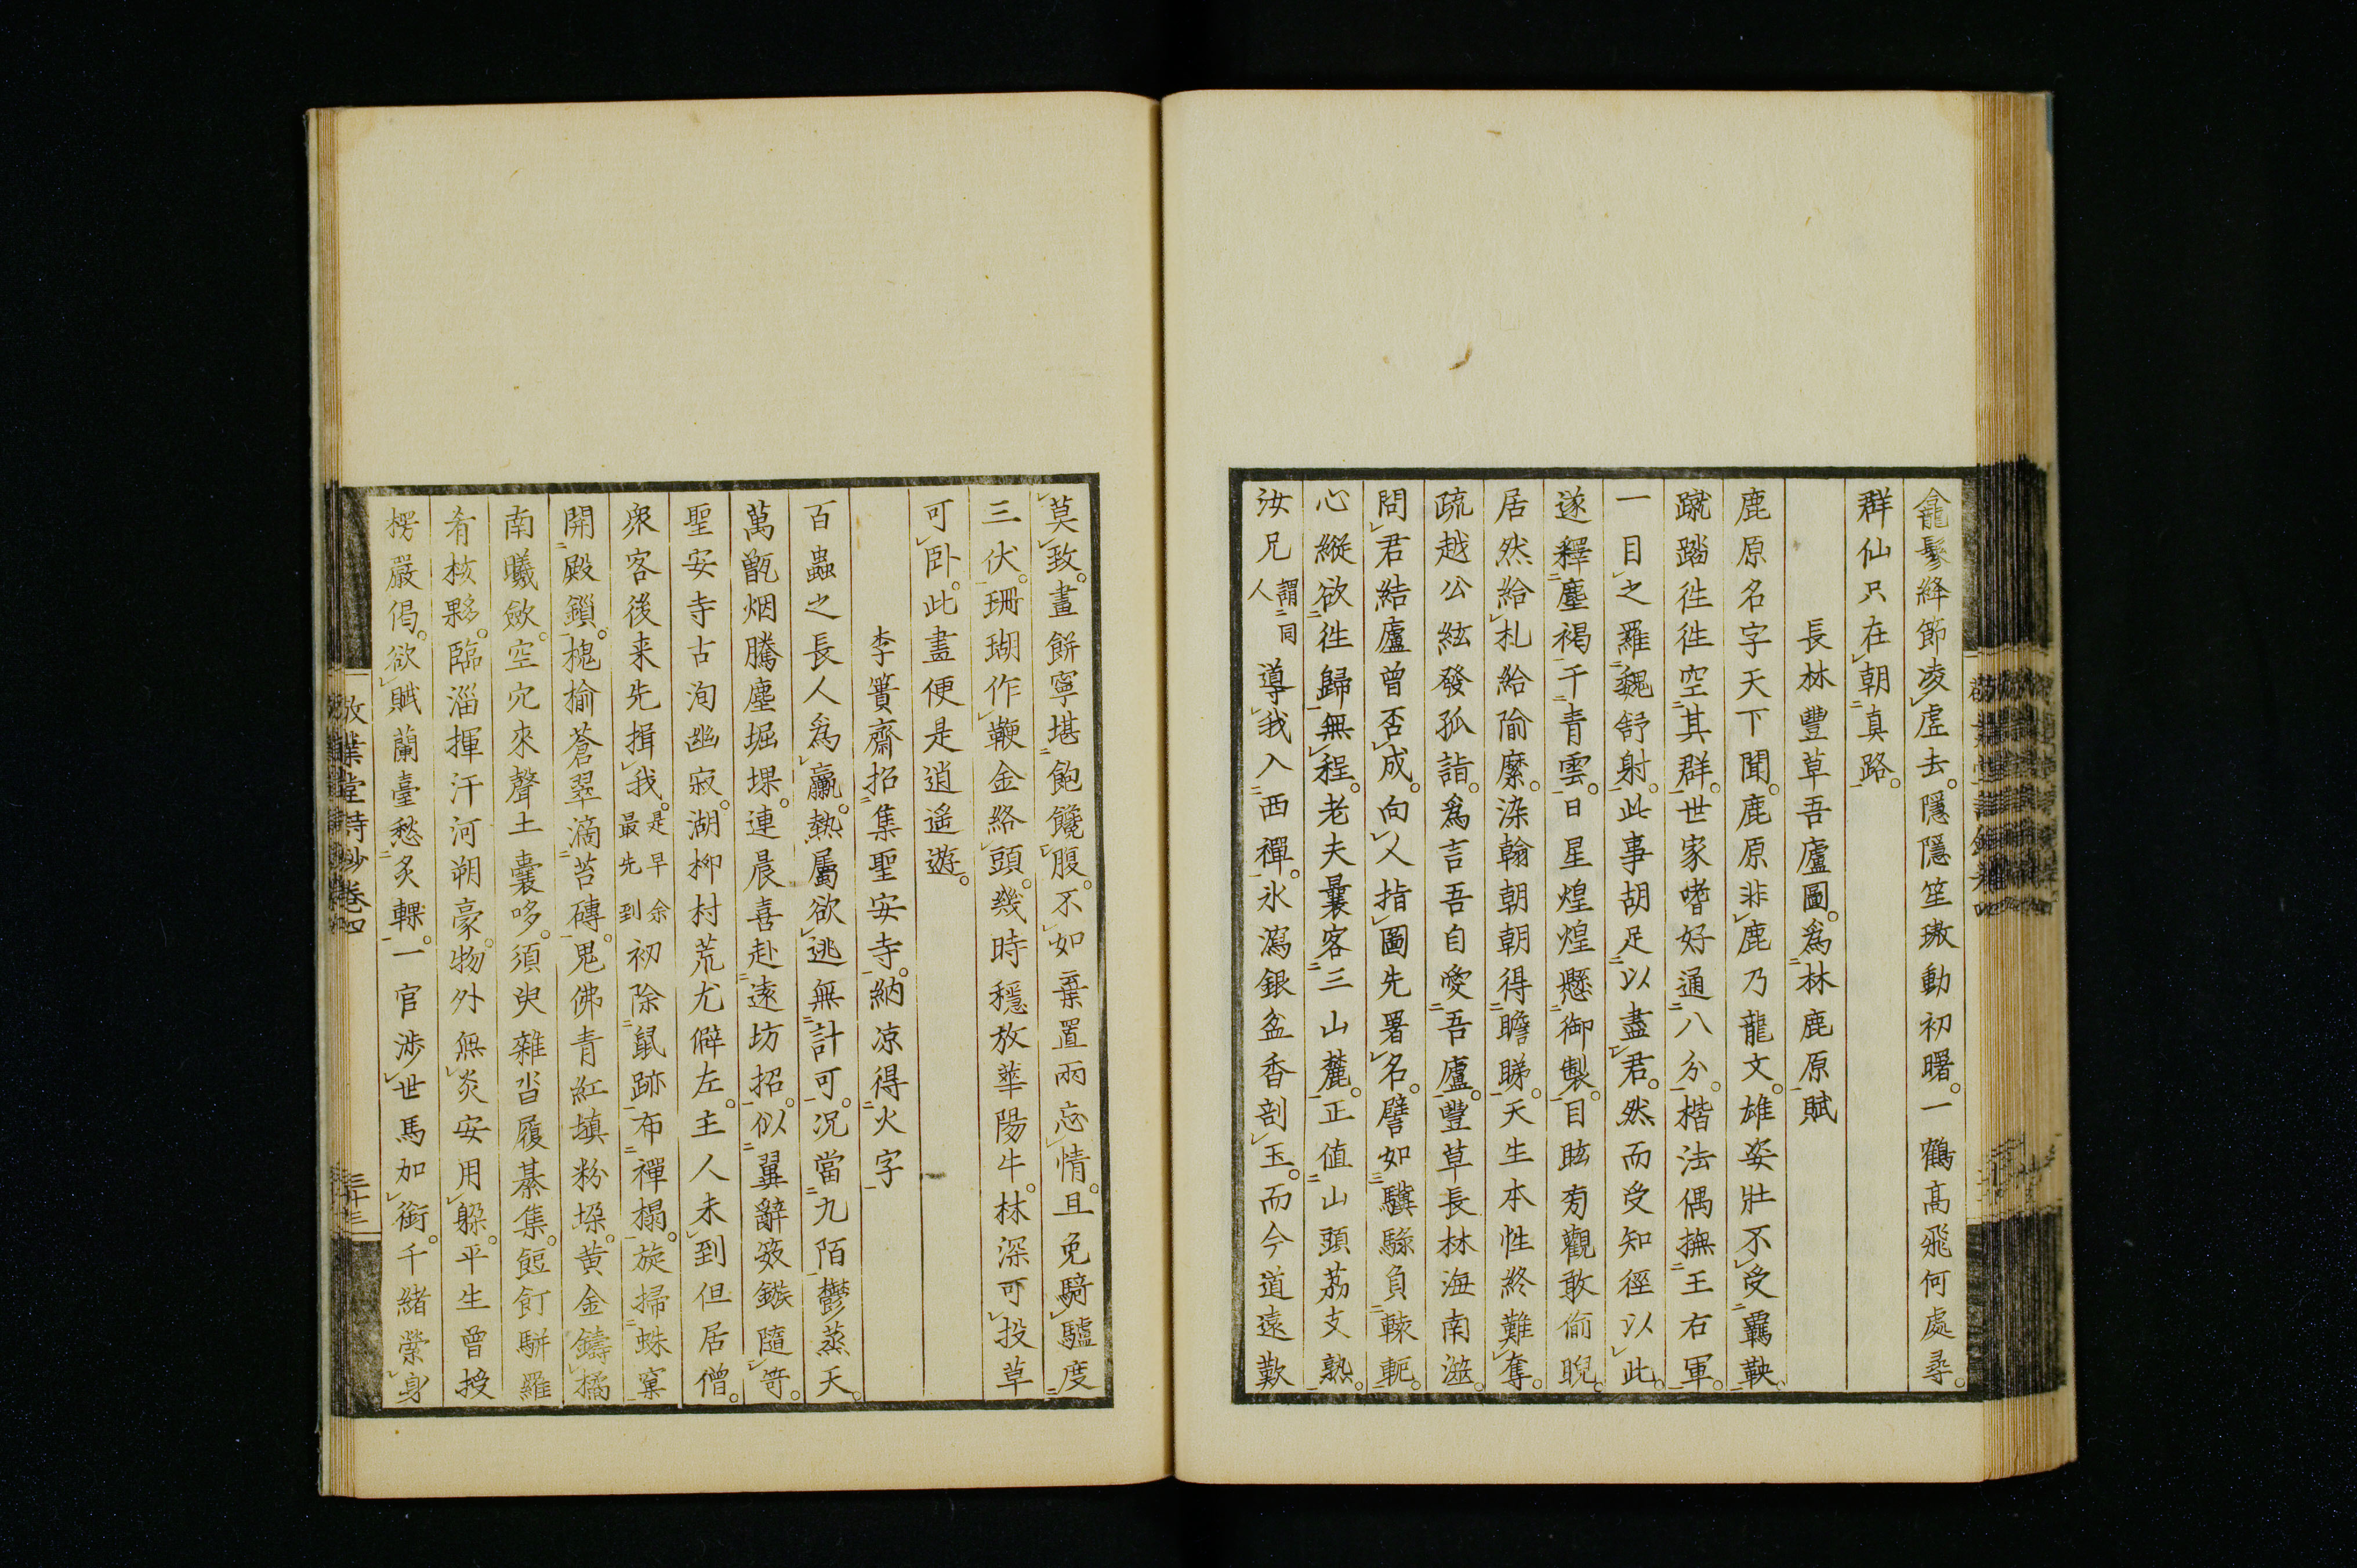 龕鬖絳節凌虛去。隱隱笙璈動初曙。一鶴高飛何處尋。
群仙只在朝真路。
長林豐草吾廬圖。爲林鹿原賦
鹿原名字天下聞。鹿原非鹿乃龍文。雄姿壯不受羈鞅。
蹴踏往往空其群。世家嗜好通八分。楷法偶撫王右軍。
一目之羅魏舒射。此事胡足以盡君。然而受知徑以此。
遂釋塵褐千青雲。日星煌煌懸御製。目眩旁觀敢偷睨。
居然給札給隃糜。染翰朝朝得瞻睇。天生本性終難奪。
疏越公絃發孤詣。爲言吾自愛吾廬。豐草長林海南澨。
問君結廬曾否成。向人指圖先署名。譬如驥騄負轅軛。
心縱欲往歸無程。老夫曩客三山麓。正值山頭荔支熟。
汝兄謂同人導我入西禪。氷瀉銀盆香剖玉。而今道遠歎
莫致。畫餅寧堪飽饞腹。不如棄置兩忘情。且免騎驢度
三伏。珊瑚作鞭金絡頭。幾時穩放華陽牛。林深可投草
可卧。此畫便是逍遙遊。
李簣齋招集聖安寺。納凉得火字
百蟲之長人爲蠃。熱屬欲逃無計可。况當九陌鬱蒸天。
萬甑烟騰塵堀堁。連晨喜赴遠坊招。似翼辭笯鏃隨笴。
聖安寺古洵幽寂。湖柳村荒尤僻左。主人未到但居僧。
衆客後来先揖我。是早余最先到初除鼠跡布禪榻。旋掃蛛窠
開殿鎖。槐榆蒼翠滴苔磚。鬼佛青紅填粉垜。黄金鑄橘
南曦斂。空穴來聲土囊哆。須臾雜沓履綦集。餖飣駢羅
肴核夥。臨淄揮汗河朔豪。物外無炎安用躱。平生曾授
楞嚴偈。欲賦蘭臺愁炙輠。一官涉世馬加銜。千緒縈身
放葉堂詩鈔卷四
三十三